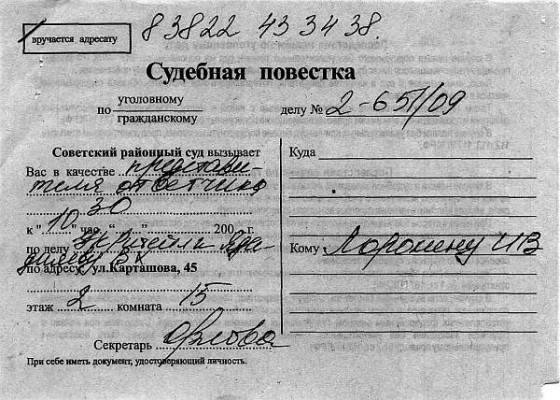 вручается адресату
83822 43 34 38.
Судебная повестка
по уголовному
гражданскому
делу № 2-651/09
Советский районный суд вызывает
Вас в качестве представи-
теля ответчика
к "10" час. 30 200 г.
по делу
по адресу: ул.Карташова, 45
этаж 2 комната 15
Секретарь Орлова
При себе иметь документ, удостоверяющий личность.
Куда
Кому
ИВ